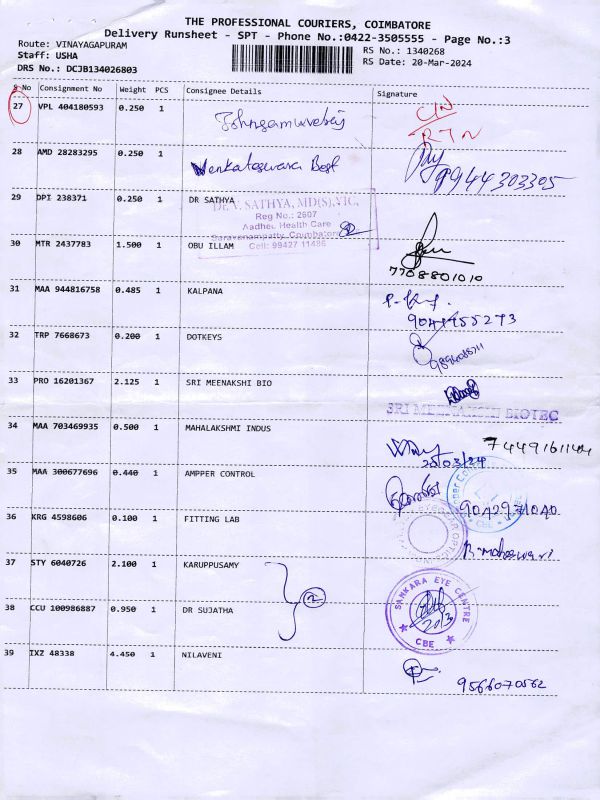 THE PROFESSIONAL COURIERS, COIMBATORE
Delivery Runsheet - SPT - Phone No.:0422-3505555 - Page No.:3
Route: VINAYAGAPURAM
RS No.: 1340268
Staff: USHA
RS Date: 20-Mar-2024
DRS No.: DCJB134026803
S No Consignment No Weight PCS Consignee Details Signature
27 VPL 404180593 0.250 1
28 AMD 28283295 0.250 1 Venkateswara Best 9944303305
29 DPI 238371 0.250 1 DR SATHYA
DR.V. SATHYA, MD(S), VIC,
Reg No.: 2607
Aadhei Health Care
Saravanampatty, Coimbatore
Cell: 99427 11486
30 MTR 2437783 1.500 1 OBU ILLAM
7708801010
31 MAA 944816758 0.485 1 KALPANA
32 TRP 7668673 0.200 1 DOTKEYS
33 PRO 16201367 2.125 1 SRI MEENAKSHI BIO
SRI MEENAKSHI BIOTEC
34 MAA 703469935 0.500 1 MAHALAKSHMI INDUS
20/03/24
35 MAA 300677696 0.440 1 AMPPER CONTROL
9042931040
36 KRG 4598606 0.100 1 FITTING LAB
R. Maheswari
37 STY 6040726 2.100 1 KARUPPUSAMY
2
SANKARA EYE CENTRE
38 CCU 100986887 0.950 1 DR SUJATHA
20/3
CBE
39 IXZ 48338 4.450 1 NILAVENI
9566070562